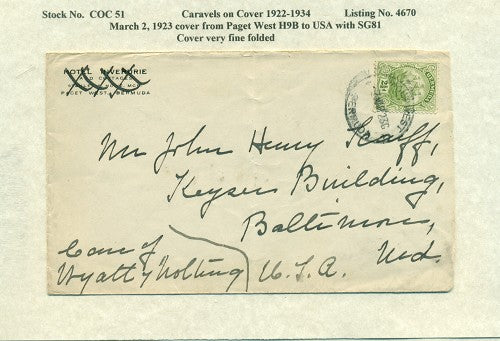 Stock No. COC 51 Caravels on Cover 1922-1934 Listing No. 4670
March 2, 1923 cover from Paget West H9B to USA with SG81
Cover very fine folded
HOTEL INVERURIE
AND COTTAGES
PAGET WEST, BERMUDA
Mr John Henry Scarff,
Keyser Building,
Baltimore,
Md.
Care of
Wyatt & Nolting U.S.A.